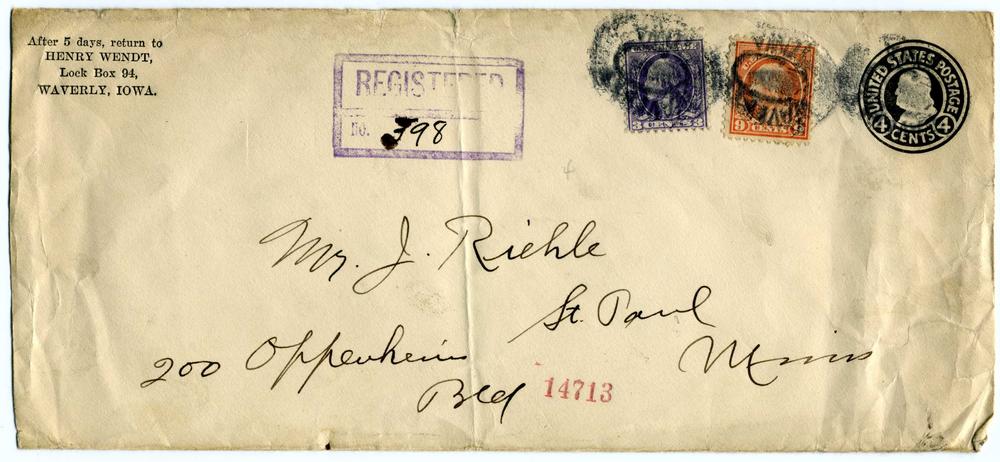 After 5 days, return to
HENRY WENDT,
Lock Box 94,
WAVERLY, IOWA.
REGISTERED
No. 398
3 3
9 CENTS 9
UNITED STATES POSTAGE
4 CENTS 4
Mr. J. Riehle
St. Paul
Minn
200 Oppenheim
Bld
14713